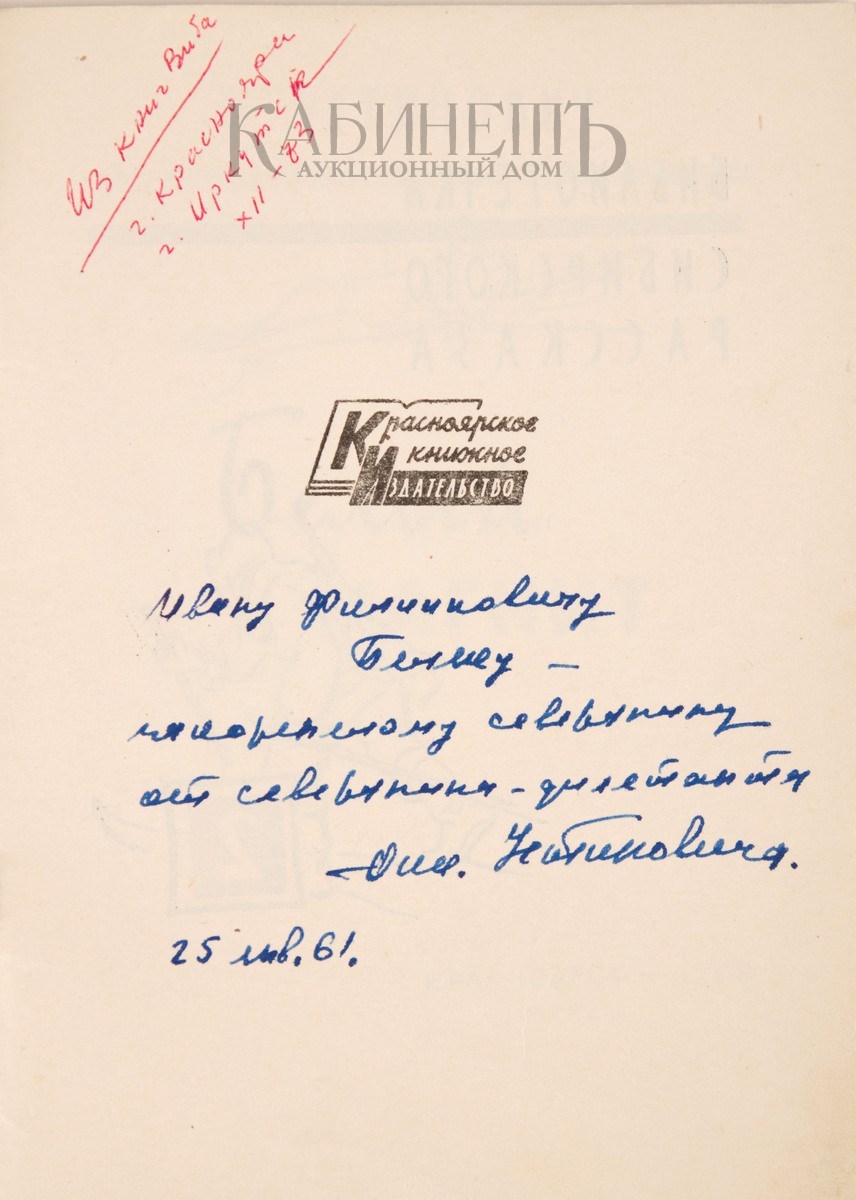 Из книг Виба
г. Красноярск
г. Иркутск
XII - 83
КАБИНЕТЪ
АУКЦИОННЫЙ ДОМ
БИБЛИОТЕЧКА
СИБИРСКОГО
РАССКАЗА
Красноярское
книжное
Издательство
Ивану Филипповичу
закоренелому северянину
от северянина-дилетанта
25 янв. 61.